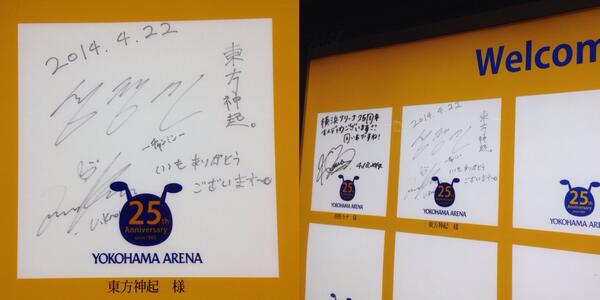 2014.4.22
東方神起。
심창민
ーチャンミンー
いつもありがとう
ございます〜
U-Know
25th
Anniversary
since 1989
YOKOHAMA ARENA
東方神起 様
Welcom
横浜アリーナ25周年
おめでとうございます!!
25th
Anniversary
2014.4.22
東方神起。
いつもありがとう
ございます〜
25th
Anniversary
YOKOHAMA ARENA
YOKOHAMA ARENA
東方神起 様